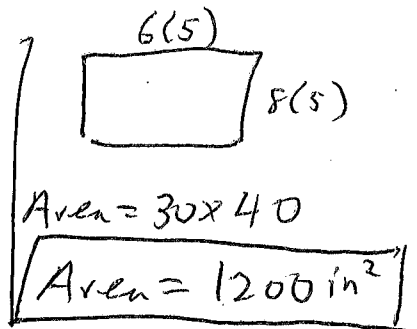 6(5)
8(5)
Area = 30x40
Area = 1200 in²